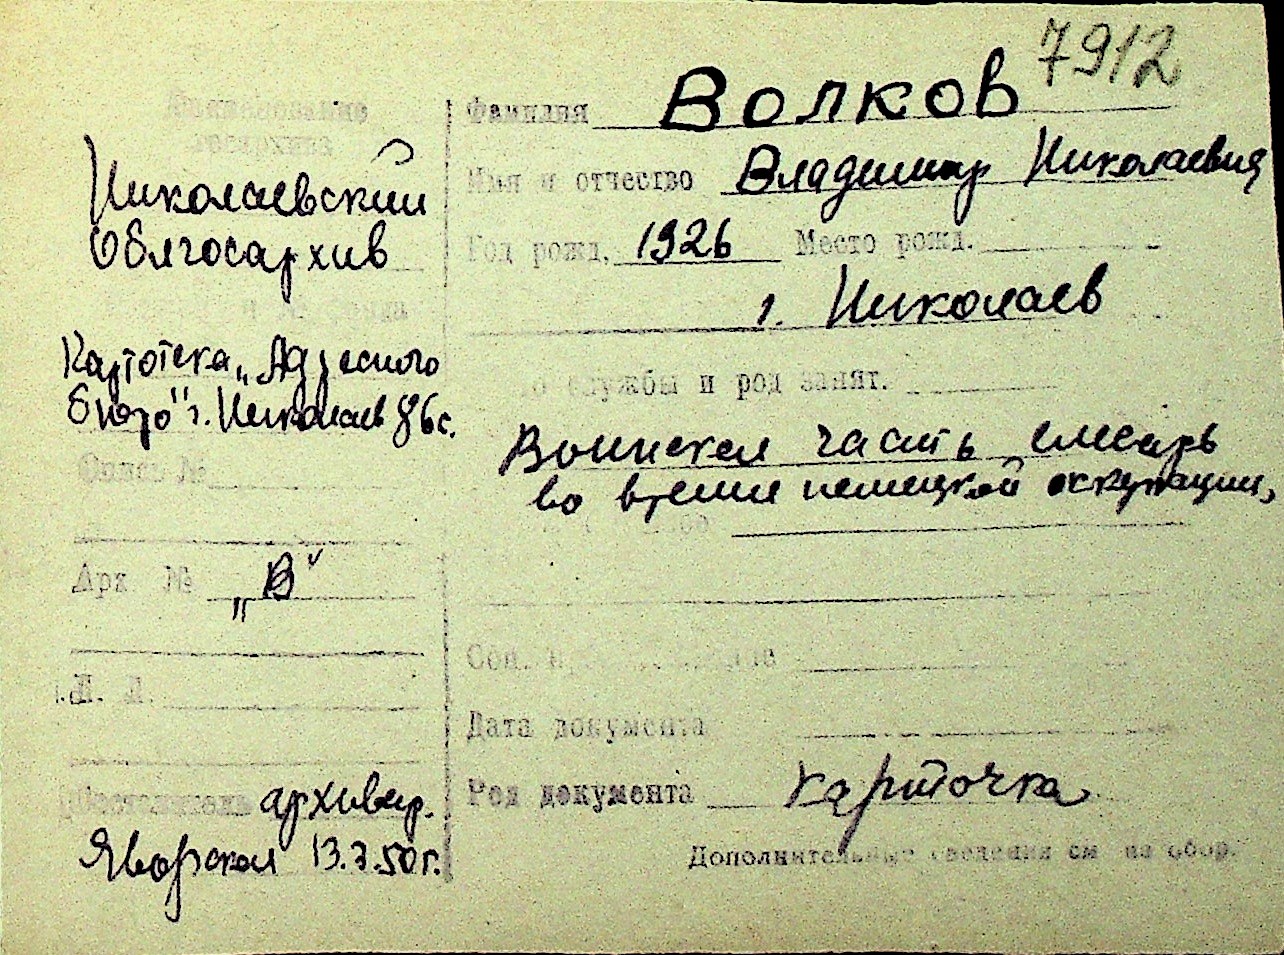 7912
Фамилия Волков
Имя и отчество Владимир Николаевич
Год рожд. 1926 Место рожд.
г. Николаев
службы и род занят.
Воинская часть слесарь
во время немецкой оккупации,
Дата документа
Род документа карточка
Дополнительные сведения см на обор.
Наименование
госархива
Николаевский
Облгосархив
Картотека „Адресного
бюро" г. Николаев
Опись №
Арх № „В"
Л. Л.
Составитель архивар.
Яворская 13.3.50г.